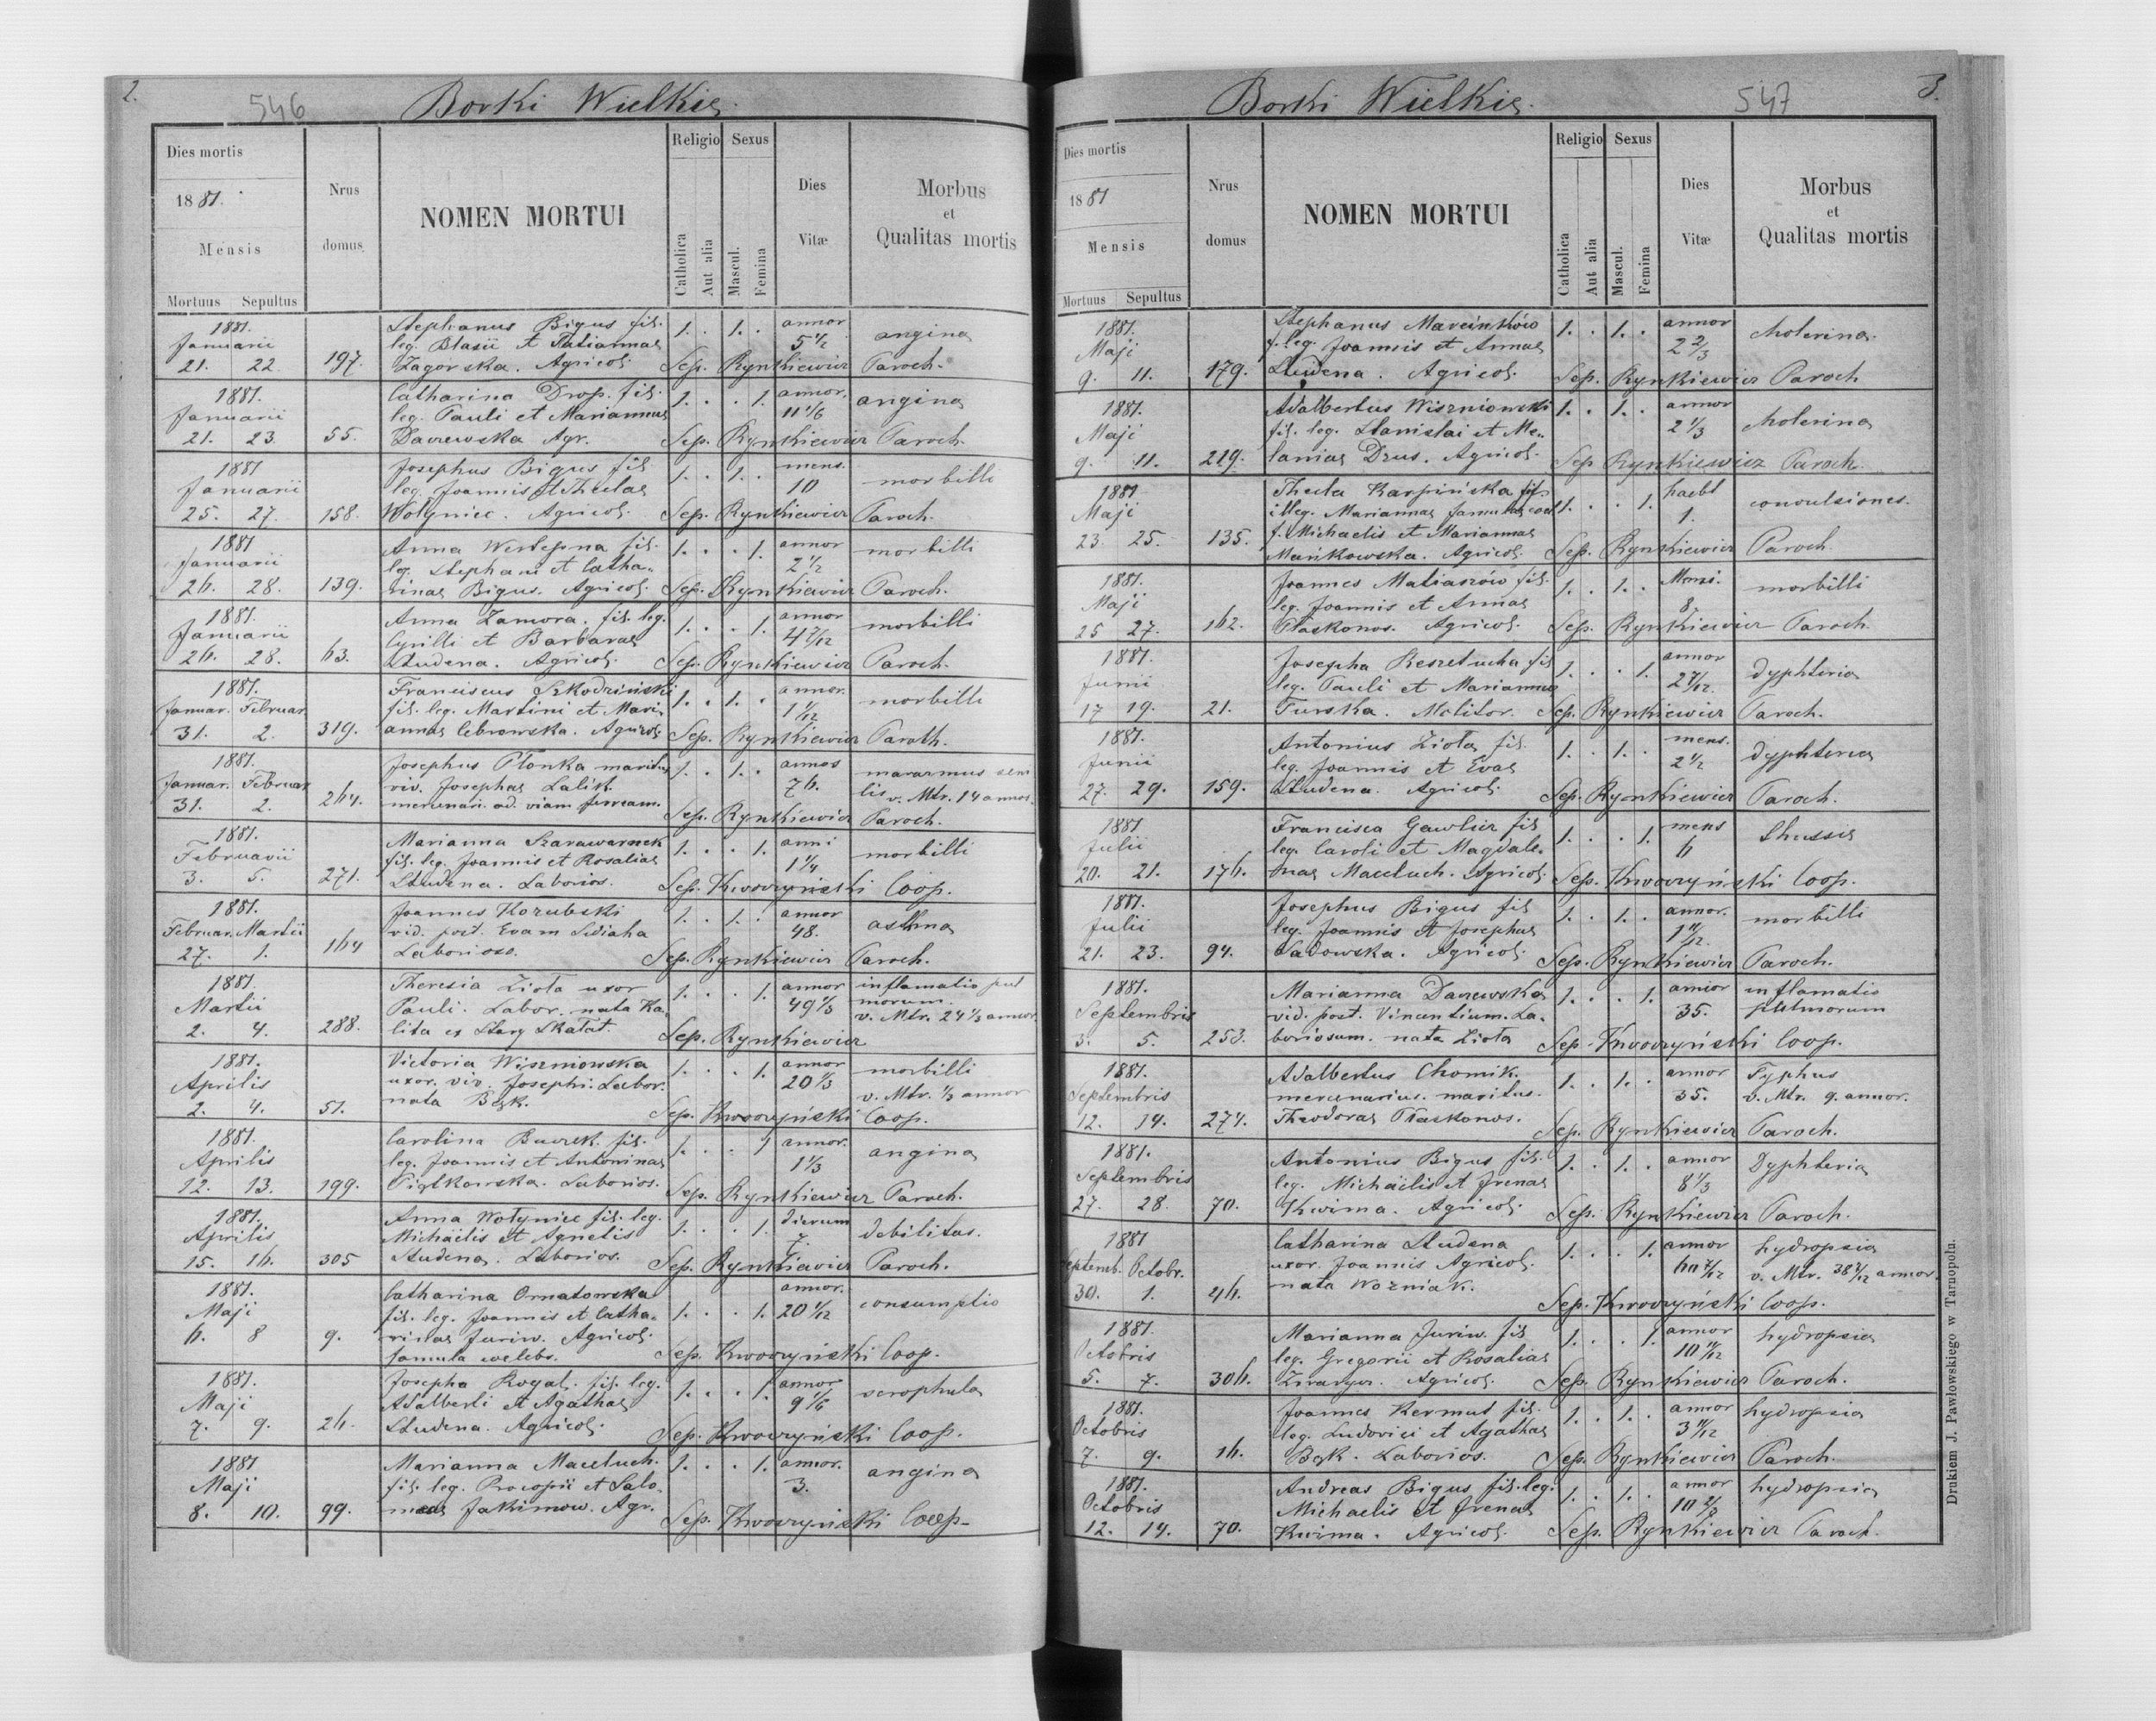 2.
546
Borki Wielkie.
Dies mortis
1881.
Mensis
Mortuus Sepultus
Nrus domus
NOMEN MORTUI
Religio
Catholica
Aut alia
Sexus
Mascul.
Femina
Dies Vitæ
Morbus
et
Qualitas mortis
1881. Stephanus Bigus fil. 1. . 1. . annor
Januarii leg. Blasii et Tatiannae 5 1/2 angina
21. 22. 197. Zagorska. Agricol. Sep. Rynkiewicz Paroch.
1881. Catharina Drop. fil. 1. . . 1. annor.
Januarii leg. Pauli et Mariannae 11 1/6 angina
21. 23. 55. Daczewska Agr. Sep. Rynkiewicz Paroch.
1881 Josephus Bigus fil 1. . 1. . mens.
Januarii leg. Joannis et Theclae 10 morbilli
25. 27. 158. Wołyniec. Agricol. Sep. Rynkiewicz Paroch.
1881 Anna fil. 1. . . 1. annor
Januarii leg. Stephani et Catha- 2 1/2 morbilli
26. 28. 139. rinae Bigus. Agricol. Sep. Rynkiewicz Paroch.
1881. Anna Zamora. fil. leg. 1. . . 1. annor
Januarii Cyrilli et Barbarae 4 7/12 morbilli
26. 28. 63. Studena. Agricol. Sep. Rynkiewicz Paroch.
1881. Franciscus Szkodziński 1. . 1. . annor.
Januar. Februar. fil. leg. Martini et Mari- 1 1/12 morbilli
31. 2. 319. annae Cebrowska. Agricol. Sep. Rynkiewicz Paroch.
1881. Josephus Płonka maritus 1. . 1. . annor
Januar. Februar viv. Josephae Lalik. 76. marasmus seni
31. 2. 264. mercenari. ad viam ferream. lis v. Mtr. 14 annor.
Sep. Rynkiewicz Paroch.
1881. Marianna Szarawarnek 1. . . 1. anni
Februarii fil. leg. Joannis et Rosaliae 1 1/4 morbilli
3. 5. 271. Studena. Laborios. Sep. Kwoczyński Coop.
1881. Joannes Kozubski 1. . 1. . annor
Februar. Martii vid. post. Evam 48. asthma
27. 1. 164 Laborioso. Sep. Rynkiewicz Paroch.
1881. Theresia Ziota uxor 1. . . 1. annor inflamatio pul
Martii Pauli. Labor. nata Ka- 49 1/3 morum.
2. 4. 288. lita ex Stary Skałat. v. Mtr. 24 1/3 annor
Sep. Rynkiewicz
1881. Victoria Wiszniowska 1. . . 1. annor morbilli
Aprilis uxor. viv. Josephi. Labor. 20 1/3 v. Mtr. 1/3 annor
2. 4. 51. nata Bąk. Sep. Kwoczyński Coop.
1881. Carolina Buczek. fil. 1. . . 1 annor.
Aprilis leg. Joannis et Antoninae 1 1/3 angina
12. 13. 199. Piątkowska. Laborios. Sep. Rynkiewicz Paroch.
1881. Anna Wołyniec fil. leg. 1. . . 1. dierum
Aprilis Michaëlis et Agnetis 7. debilitas.
15. 16. 305 Studena. Laborios. Sep. Rynkiewicz Paroch.
1881. Catharina Ornatowska annor.
Maji fil. leg. Joannis et Catha- 1. . . 1. 20 1/12 consumptio
6. 8 9. rinae Juriw. Agricol.
famula coelebs. Sep. Kwoczyński Coop.
1881. Josepha Rogal. fil. leg. 1. . . 1. annor
Maji Adalberti et Agathae 9 1/6 scrophula
7. 9. 26. Studena. Agricol. Sep. Kwoczyński Coop.
1881 Marianna Maceluch. 1. . . 1. annor.
Maji fil. leg. Procopii et Salo- 3. angina
8. 10. 99. meae Jakimow. Agr. Sep. Kwoczyński Coop.
3.
547
Borki Wielkie.
Dies mortis
1881
Mensis
Mortuus Sepultus
Nrus domus
NOMEN MORTUI
Religio
Catholica
Aut alia
Sexus
Mascul.
Femina
Dies Vitæ
Morbus
et
Qualitas mortis
1881. Stephanus Marcinków 1. . 1. . annor cholerina
Maji f. leg. Joannis et Annae 2 2/3
9. 11. 179. Studena. Agricol. Sep. Rynkiewicz Paroch
1881. Adalbertus Wiszniowski 1. . 1. . annor
Maji fil. leg. Stanislai et Me- 2 1/3 cholerina
9. 11. 219. laniae Drus. Agricol. Sep Rynkiewicz Paroch.
1881 Thecla Karpińska fil 1. . . 1. convulsiones.
Maji illeg. Mariannae famulae coel 1.
23. 25. 135. f. Michaelis et Mariannae
Mańkowska. Agricol. Sep. Rynkiewicz Paroch.
1881. Joannes Matiaszów fil. 1. . 1. . Mensi. morbilli
Maji leg. Joannis et Annae 8.
25 27. 162. Płaskonos. Agricol. Sep. Rynkiewicz Paroch.
1881. Josepha Reszetucha fil 1. . . 1. annor
Junii leg. Pauli et Mariannae 2 7/12. dyphteria
17 19. 21. Turska. Molitor. Sep. Rynkiewicz Paroch.
1881. Antonius Ziota fil. 1. . 1. . mens.
Junii leg. Joannis et Evae 2 1/2 dyphteria
27. 29. 159. Studena. Agricol. Sep. Rynkiewicz Paroch.
1881 Francisca Gawlicz fil 1. . . 1. mens
Julii leg. Caroli et Magdale- 6
20. 21. 176. nae Maceluch. Agricol. Sep. Kwoczyński Coop.
1881. Josephus Bigus fil 1. . 1. . annor. morbilli
Julii leg. Joannis et Josephae 1 11/12.
21. 23. 94. Sadowska. Agricol. Sep. Rynkiewicz Paroch.
1881. Marianna Daczewska 1. . . 1. annor inflamatio
Septembris vid. post. Vincentium. La- 35. pulmorum
3. 5. 253. boriosum. nata Ziota Sep. Kwoczyński Coop.
1881. Adalbertus Chomik. 1. . 1. . annor Typhus
Septembris mercenarius. maritus. 35. v. Mtr. 9. annor.
12. 14. 274. Theodorae Płaskonos. Sep. Rynkiewicz Paroch.
1881. Antonius Bigus fil. 1. . 1. . annor Dyphteria
Septembris leg. Michaëlis et Irenae 8 1/3
27. 28. 70. Kwirma. Agricol. Sep. Rynkiewicz Paroch.
1881 Catharina Studena 1. . . 1. annor hydropsia
Septemb. Octobr. uxor. Joannis Agricol. 60 7/12 v. Mtr. 38 7/12 annor.
30. 1. 46. nata Wozniak. Sep. Kwoczyński Coop.
1881. Marianna Juriw. fil 1. . . 1. annor hydropsia
Octobris leg. Gregorii et Rosaliae 10 11/12
5. 7. 306. Agricol. Sep. Rynkiewicz Paroch.
1881. Joannes Kermut fil. 1. . 1. . annor hydropsia
Octobris leg. Ludovici et Agathae 3 11/12
7. 9. 16. Bąk. Laborios. Sep. Rynkiewicz Paroch.
1881. Andreas Bigus fil. leg. 1. . 1. . annor hydropsia
Octobris Michaelis et Irenae 10 2/3
12. 14. 70. Kwirma. Agricol. Sep. Rynkiewicz Paroch.
Drukiem J. Pawłowskiego w Tarnopolu.